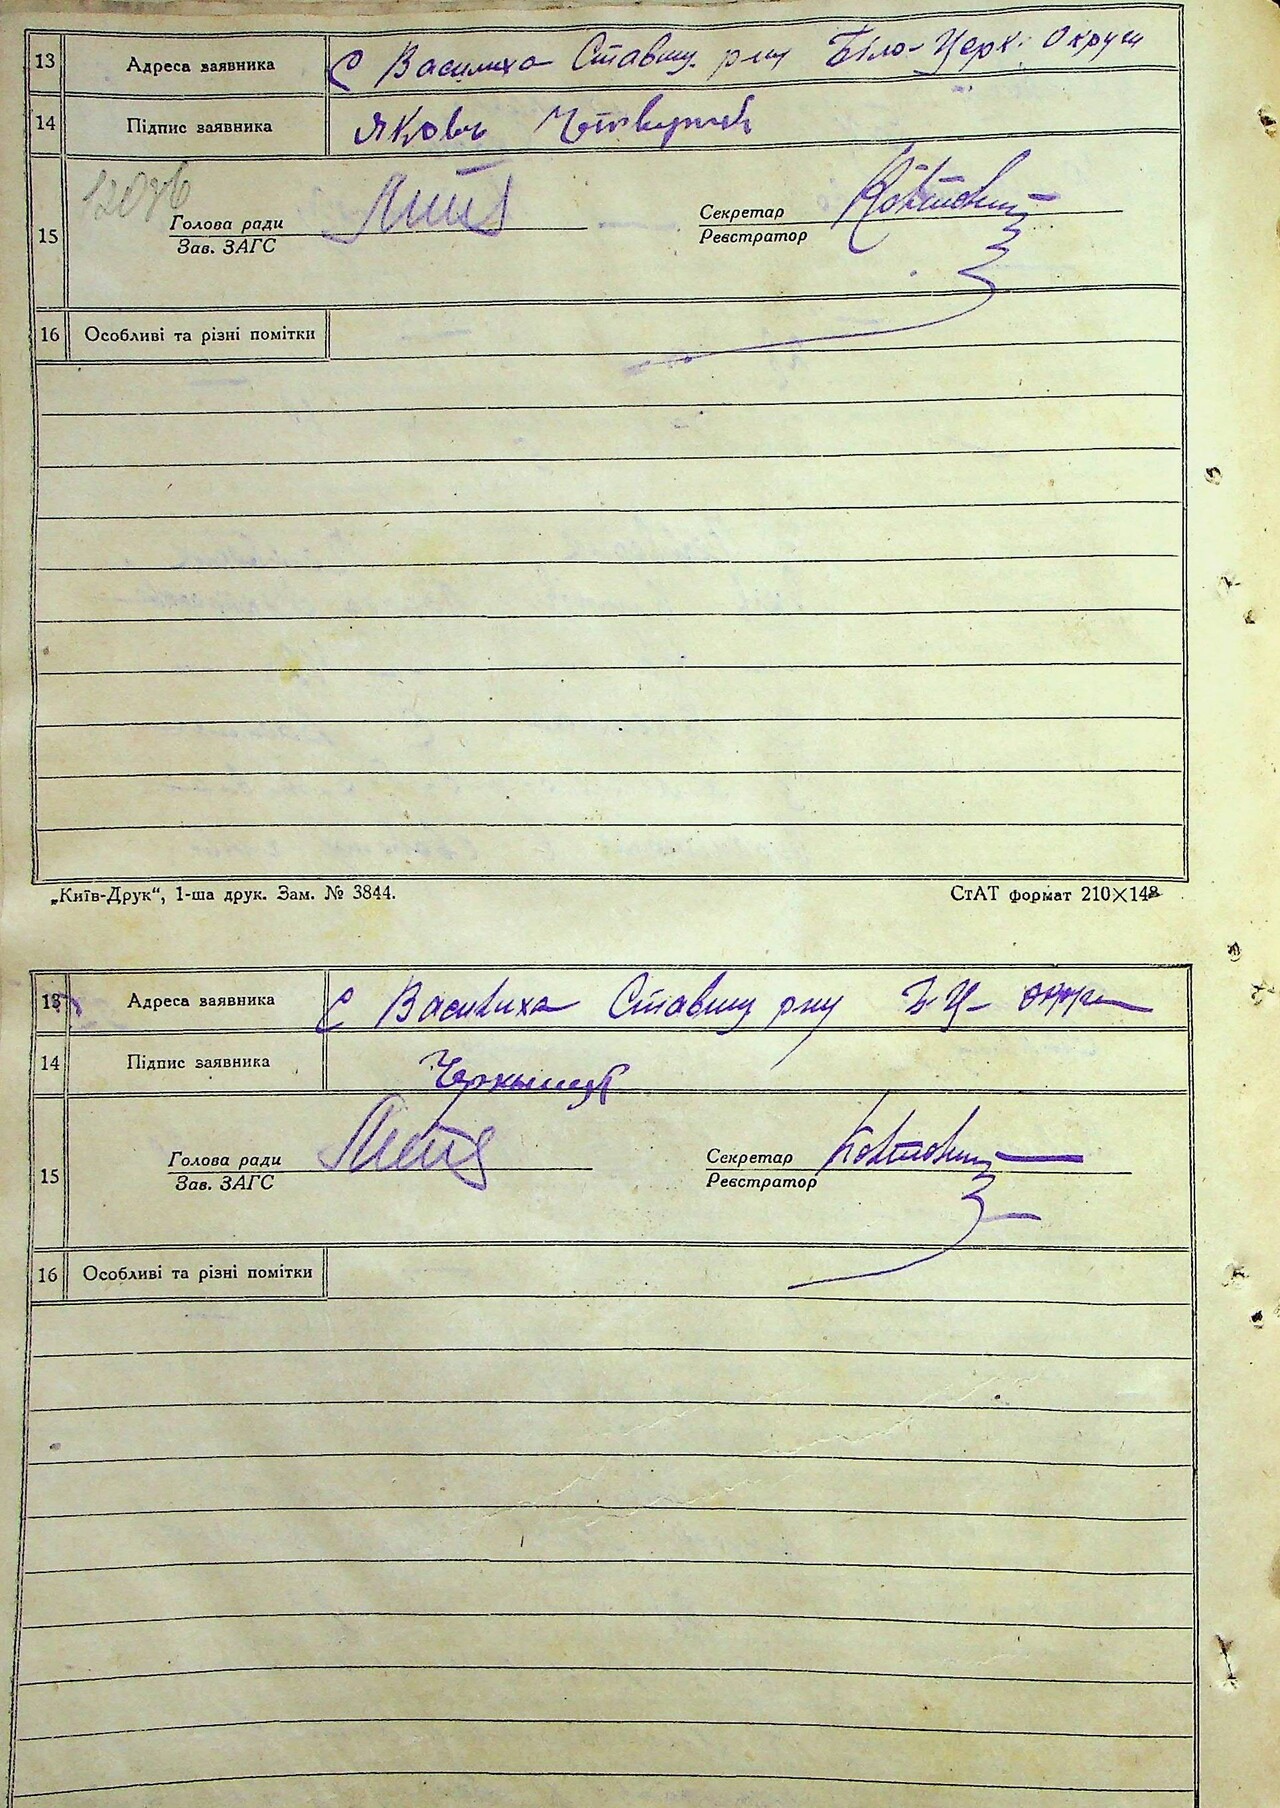 13 Адреса заявника С Василиха Ставищ. р-ну Біло-Церк. Округи
14 Підпис заявника Яковъ
15 Голова ради Секретар
Зав. ЗАГС Реєстратор
16 Особливі та різні помітки
„Київ-Друк“, 1-ша друк. Зам. № 3844. СтАТ формат 210×148
13 Адреса заявника С Василиха Ставищ р-ну Б-Ц- округи
14 Підпис заявника
15 Голова ради Секретар
Зав. ЗАГС Реєстратор
16 Особливі та різні помітки